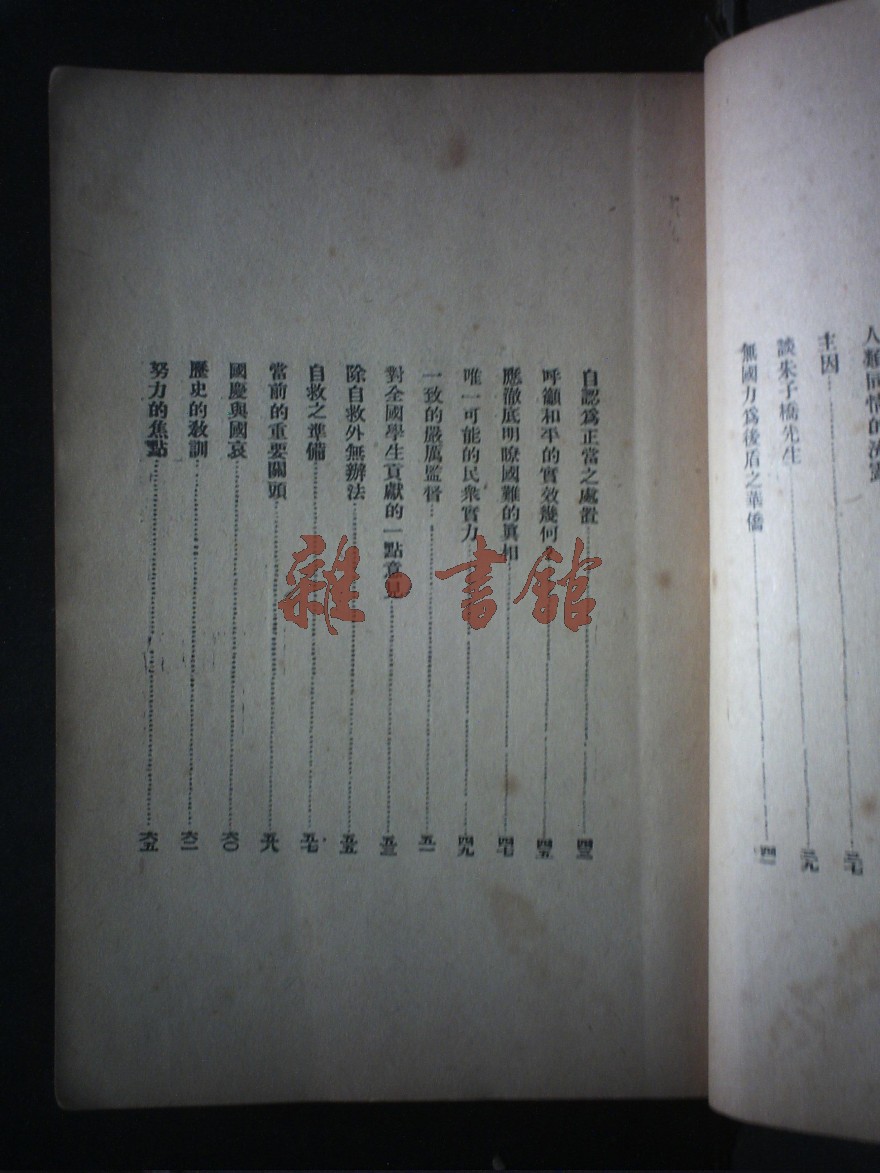 人類同情的
主因 三七
談朱子橋先生 三九
無國力爲後盾之華僑 四一
自認爲正當之處置 四三
呼籲和平的實效幾何 四五
應澈底明瞭國難的眞相 四七
唯一可能的民衆實力 四九
一致的嚴厲監督 五一
對全國學生貢獻的一點意見 五三
除自救外無辦法 五五
自救之準備 五七
當前的重要關頭 五九
國慶與國哀 六〇
歷史的敎訓 六二
努力的焦點 六五
雜·書館